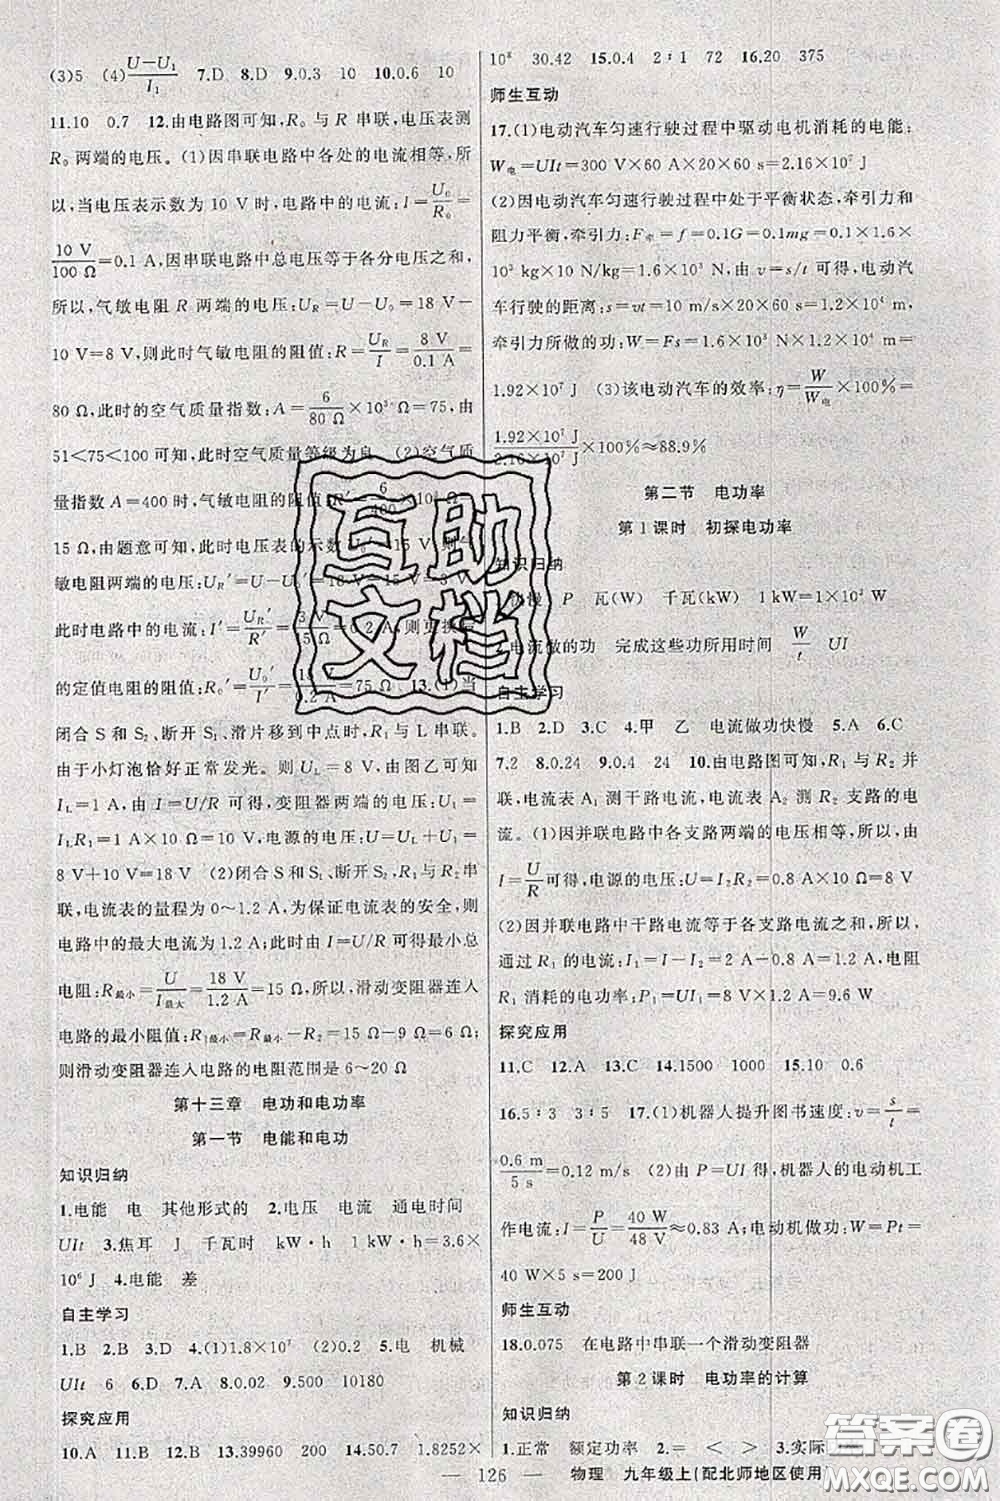 (3)5 (4)(U−U₁)/I₁ 7.D 8.D 9.0.3 10 10.0.6 10
11.10 0.7 12.由电路图可知,R₀ 与 R 串联,电压表测
R₀ 两端的电压。(1)因串联电路中各处的电流相等,所
以,当电压表示数为 10 V时,电路中的电流:I=U₀/R₀=
10 V/100 Ω=0.1 A,因串联电路中总电压等于各分电压之和,
所以,气敏电阻 R 两端的电压:U_R=U−U₀=18 V−
10 V=8 V,则此时气敏电阻的阻值:R=U_R/I=8 V/0.1 A=
80 Ω,此时的空气质量指数:A=6/80 Ω×10³ Ω=75,由
51<75<100 可知,此时空气质量等级为良 (2)空气质
量指数 A=400 时,气敏电阻的阻值:R′=6/400×10³ Ω=
15 Ω,由题意可知,此时电压表的示数
敏电阻两端的电压:U_R′=U−U₀′=18 V−15 V=3 V
此时电路中的电流:I′=U_R′/R′=3 V/15 Ω=0.2 A,则更换后
的定值电阻的阻值:R₀′=U₀′/I′=15 V/0.2 A=75 Ω 13.(1)当
闭合 S 和 S₂、断开 S₁、滑片移到中点时,R₁ 与 L 串联。
由于小灯泡恰好正常发光。则 U_L=8 V,由图乙可知
I_L=1 A,由 I=U/R 可得,变阻器两端的电压:U₁=
I_LR₁=1 A×10 Ω=10 V,电源的电压:U=U_L+U₁=
8 V+10 V=18 V (2)闭合 S 和S₁、断开 S₂,R₁ 与R₂ 串
联,电流表的量程为 0～1.2 A,为保证电流表的安全,则
电路中的最大电流为 1.2 A;此时由 I=U/R 可得最小总
电阻:R最小=U/I最大=18 V/1.2 A=15 Ω,所以,滑动变阻器连入
电路的最小阻值:R₁最小=R最小−R₂=15 Ω−9 Ω=6 Ω;
则滑动变阻器连入电路的电阻范围是 6～20 Ω
第十三章 电功和电功率
第一节 电能和电功
知识归纳
1.电能 电 其他形式的 2.电压 电流 通电时间
UIt 3.焦耳 J 千瓦时 kW·h 1 kW·h=3.6×
10⁶ J 4.电能 差
自主学习
1.B 2.B 3.D 4.(1)1.8×10⁷ (2)0.2 5.电 机械
UIt 6 6.D 7.A 8.0.02 9.500 10180
探究应用
10.A 11.B 12.B 13.39960 200 14.50.7 1.8252×
10⁸ 30.42 15.0.4 2∶1 72 16.20 375
师生互动
17.(1)电动汽车匀速行驶过程中驱动电机消耗的电能:
W电=UIt=300 V×60 A×20×60 s=2.16×10⁷ J
(2)因电动汽车匀速行驶过程中处于平衡状态,牵引力和
阻力平衡,牵引力:F牵=f=0.1G=0.1mg=0.1×1.6×
10³ kg×10 N/kg=1.6×10³ N,由 v=s/t 可得,电动汽
车行驶的距离:s=vt=10 m/s×20×60 s=1.2×10⁴ m,
牵引力所做的功:W=Fs=1.6×10³ N×1.2×10⁴ m=
1.92×10⁷ J (3)该电动汽车的效率:η=W/W电×100%=
1.92×10⁷ J/2.16×10⁷ J×100%≈88.9%
第二节 电功率
第1课时 初探电功率
知识归纳
快慢 P 瓦(W) 千瓦(kW) 1 kW=1×10³ W
2.电流做的功 完成这些功所用时间 W/t UI
自主学习
1.B 2.D 3.C 4.甲 乙 电流做功快慢 5.A 6.C
7.2 8.0.24 9.0.4 24 10.由电路图可知,R₁与R₂并
联,电流表 A₁ 测干路电流,电流表 A₂ 测 R₂ 支路的电
流。(1)因并联电路中各支路两端的电压相等,所以,由
I=U/R可得,电源的电压:U=I₂R₂=0.8 A×10 Ω=8 V
(2)因并联电路中干路电流等于各支路电流之和,所以,
通过 R₁ 的电流:I₁=I−I₂=2 A−0.8 A=1.2 A,电阻
R₁ 消耗的电功率:P₁=UI₁=8 V×1.2 A=9.6 W
探究应用
11.C 12.A 13.C 14.1500 1000 15.10 0.6
16.5∶3 3∶5 17.(1)机器人提升图书速度:v=s/t=
0.6 m/5 s=0.12 m/s (2)由 P=UI得,机器人的电动机工
作电流:I=P/U=40 W/48 V≈0.83 A;电动机做功:W=Pt=
40 W×5 s=200 J
师生互动
18.0.075 在电路中串联一个滑动变阻器
第2课时 电功率的计算
知识归纳
1.正常 额定功率 2.= < > 3.实际
— 126 — 物理 九年级上(配北师地区使用)
互助
文档
答案圈
MXQE.COM